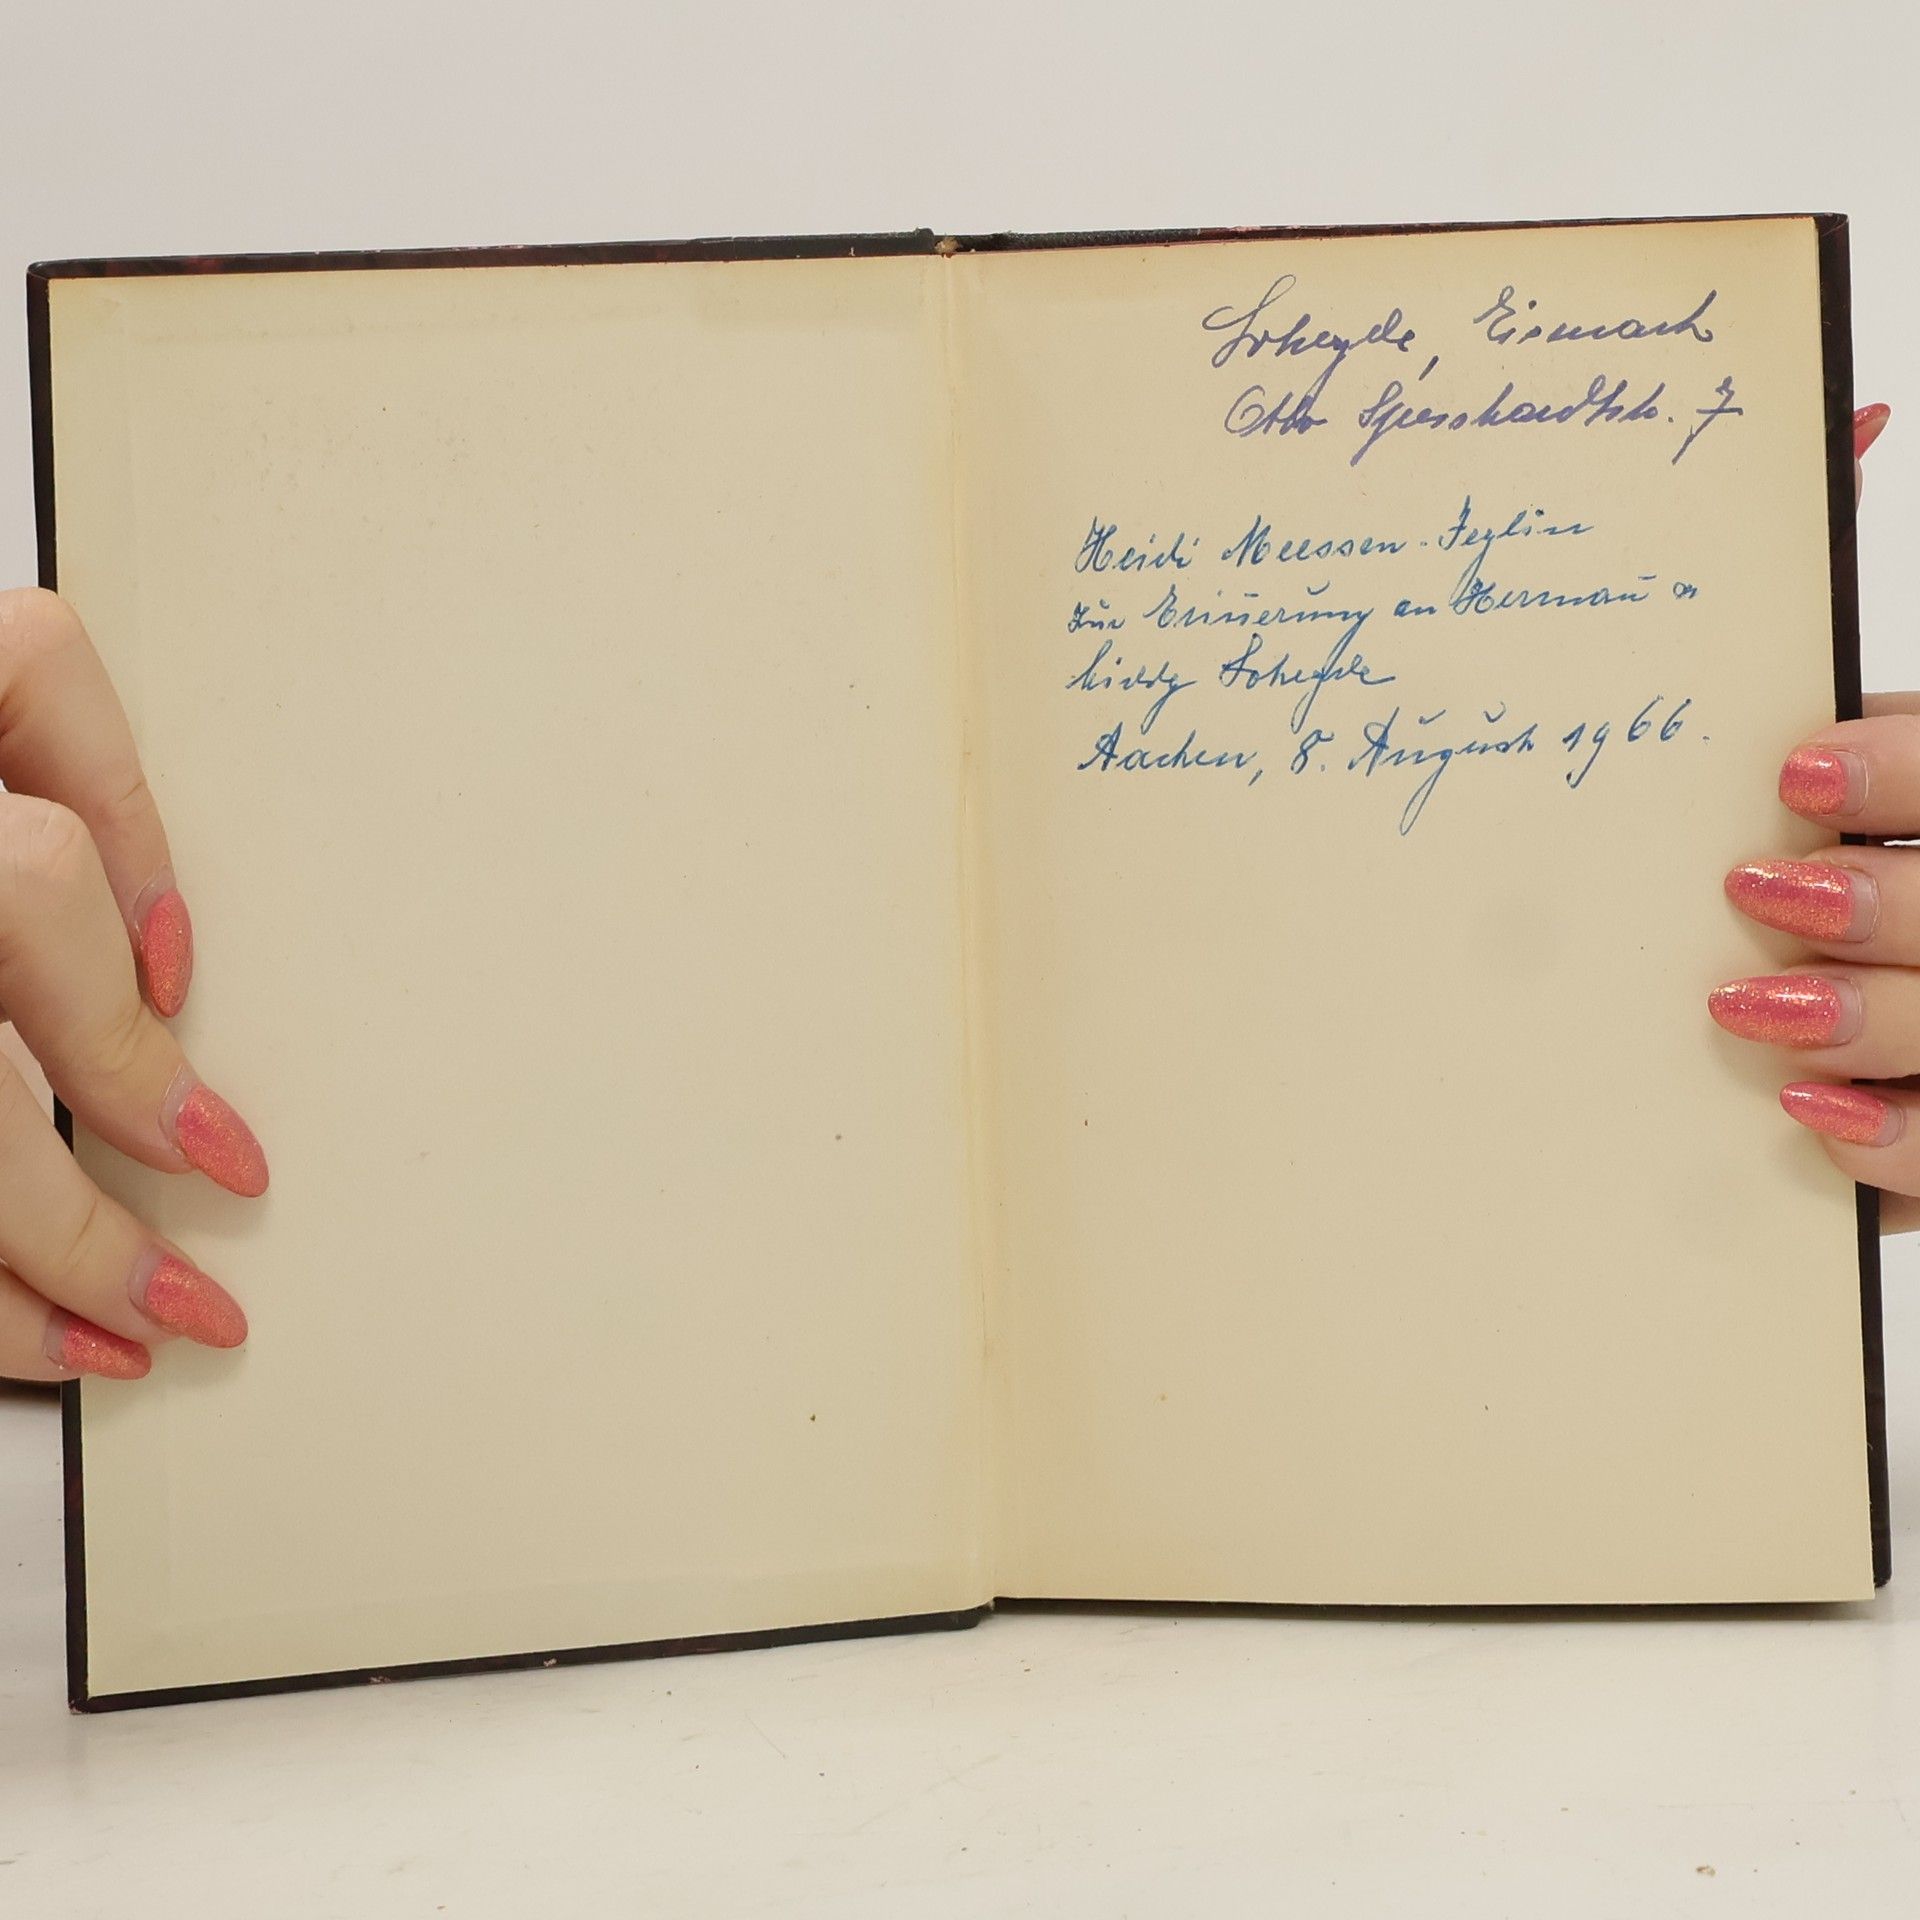 Loheyde, Eisenach
Otto Speßhardtstr. 7
Heidi Meessen-Jeglin
zur Erinnerung an Hermañ u
Loheyde
Aachen, 8. August 1966.